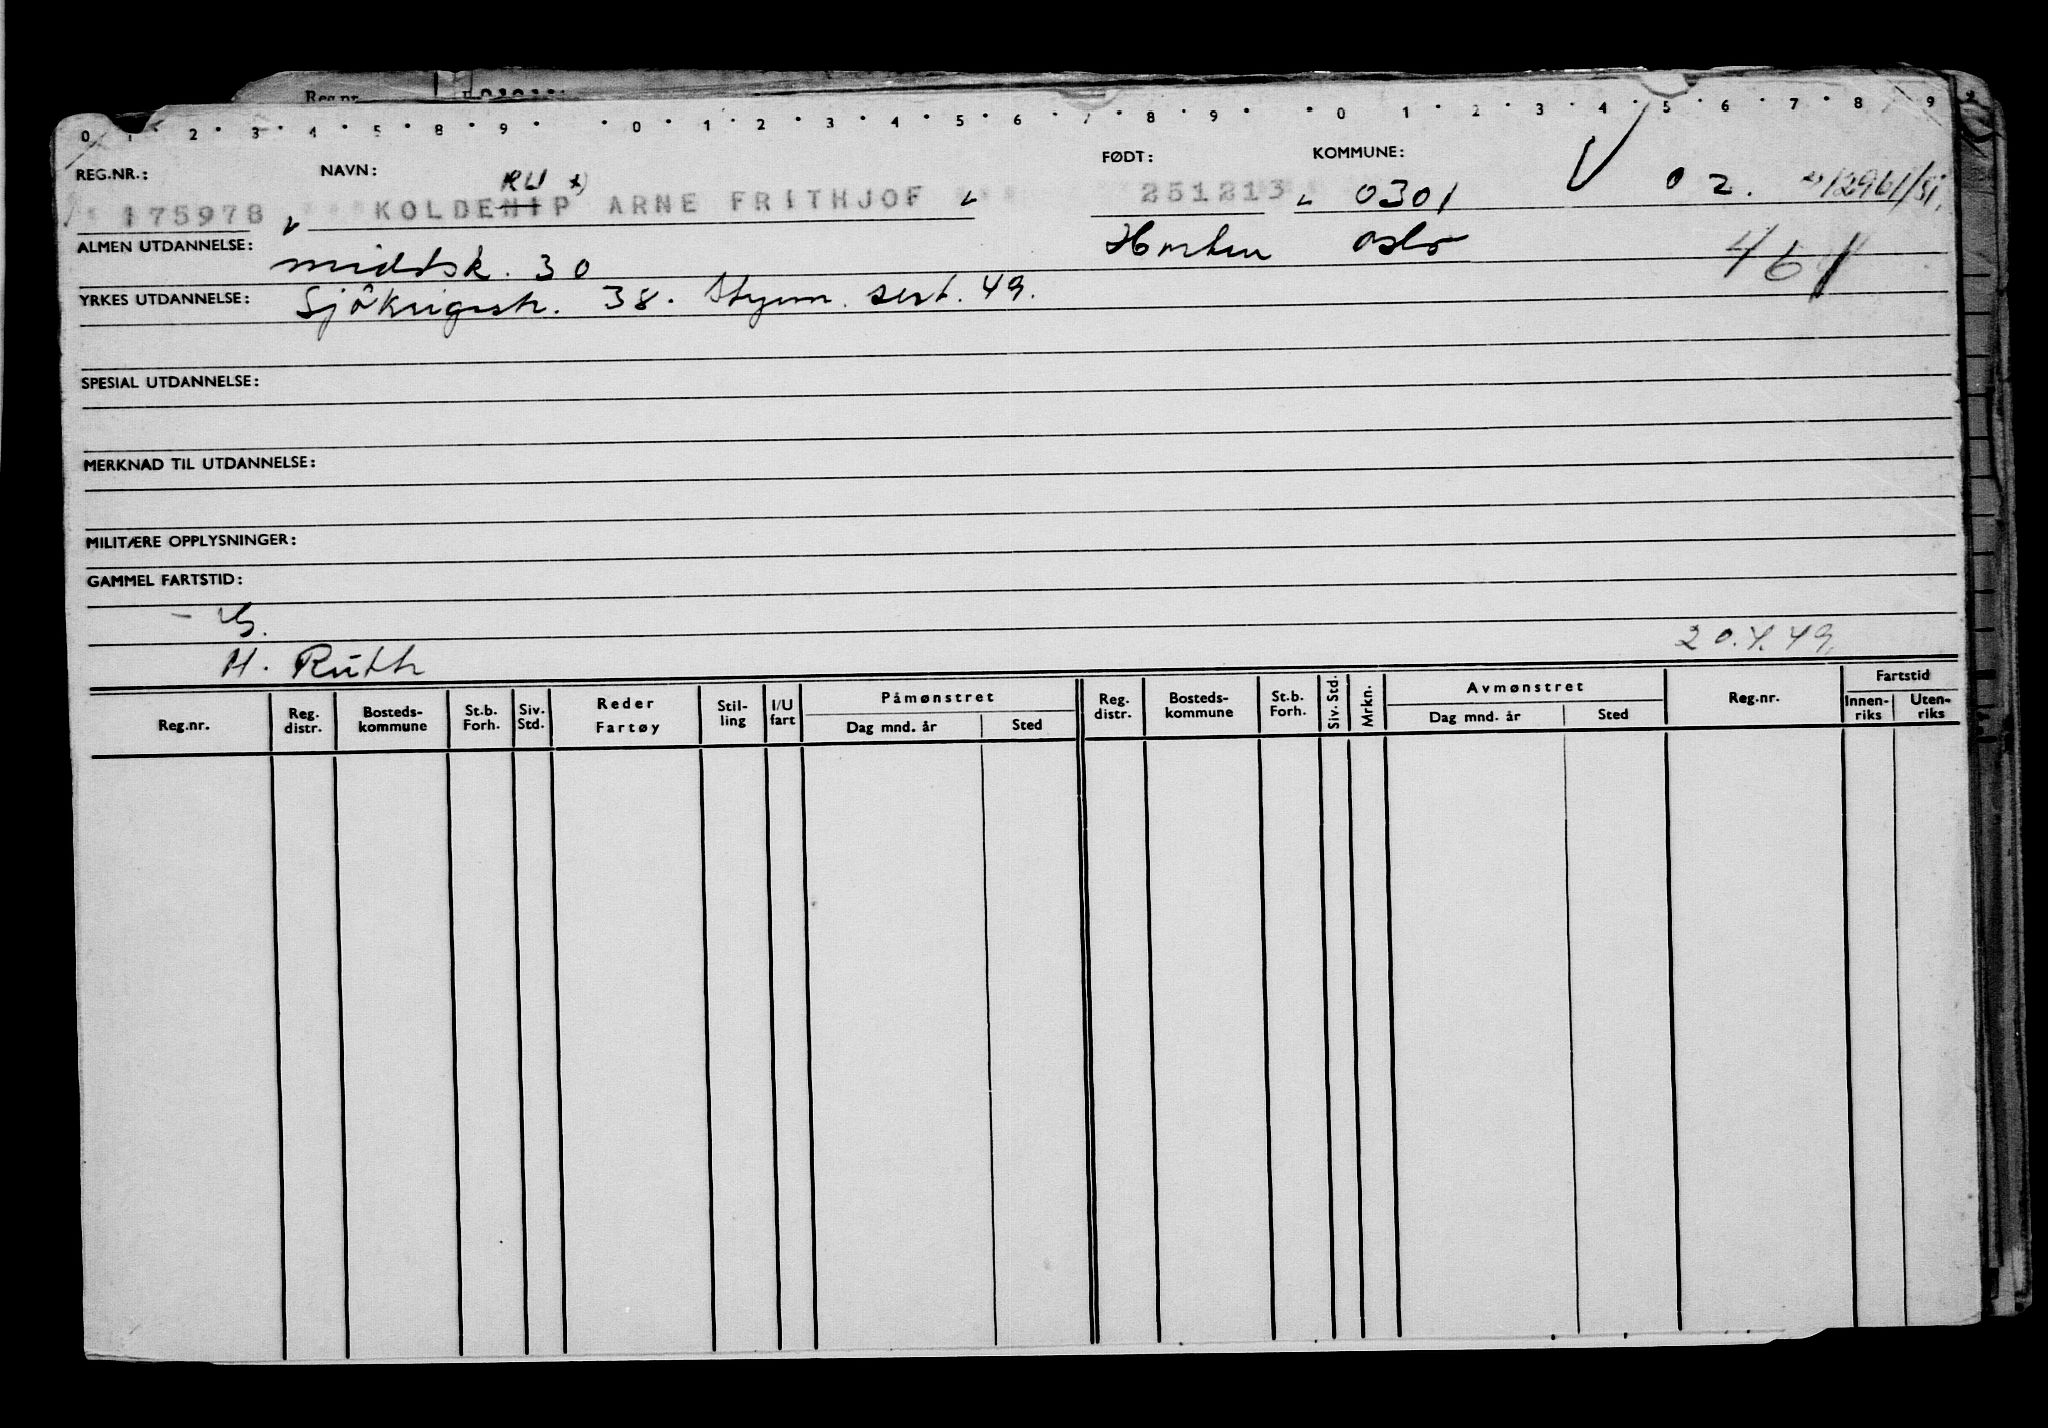 Reg.nr.
0 1 2 3 4 5 8 9 0 1 2 3 4 5 6 7 8 9 0 1 2 3 4 5 6 7 8 9
REG.NR.: NAVN: FØDT: KOMMUNE:
RU x)
175978 KOLDEHIP ARNE FRITHJOF 251213 0301 02. 12961/51.
ALMEN UTDANNELSE: middsk. 30 Horten Oslo 461
YRKES UTDANNELSE: Sjökrigssk. 38. Styrm. sert. 49.
SPESIAL UTDANNELSE:
MERKNAD TIL UTDANNELSE:
MILITÆRE OPPLYSNINGER:
GAMMEL FARTSTID:
- G.
H. Ruth 20.4.49.
Reg.nr. Reg. distr. Bosteds- kommune St.b. Forh. Siv. Std. Reder Fartøy Stil- ling I/U fart Påmønstret Dag mnd. år Sted Reg. distr. Bosteds- kommune St.b. Forh. Siv. Std. Mrkn. Avmønstret Dag mnd. år Sted Reg.nr. Fartstid Innen- riks Uten- riks